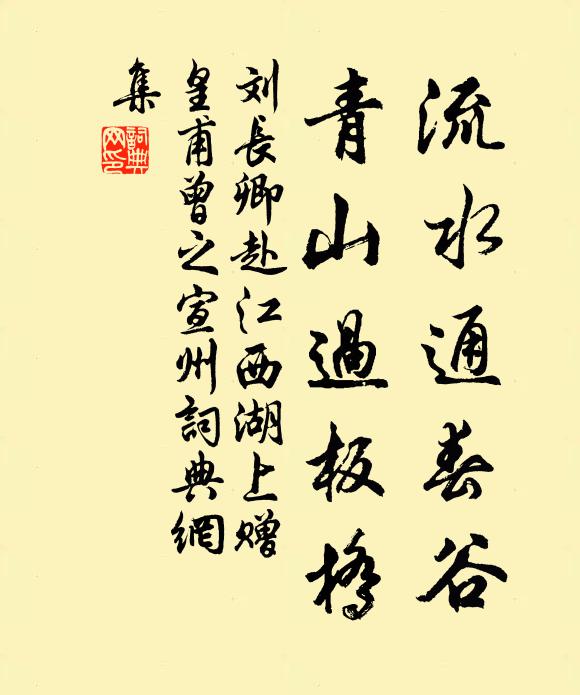 流水通春谷
青山過板橋
刘長卿赴江西湖上赠
皇甫曾之宣州詞典網
集
詞典
网印